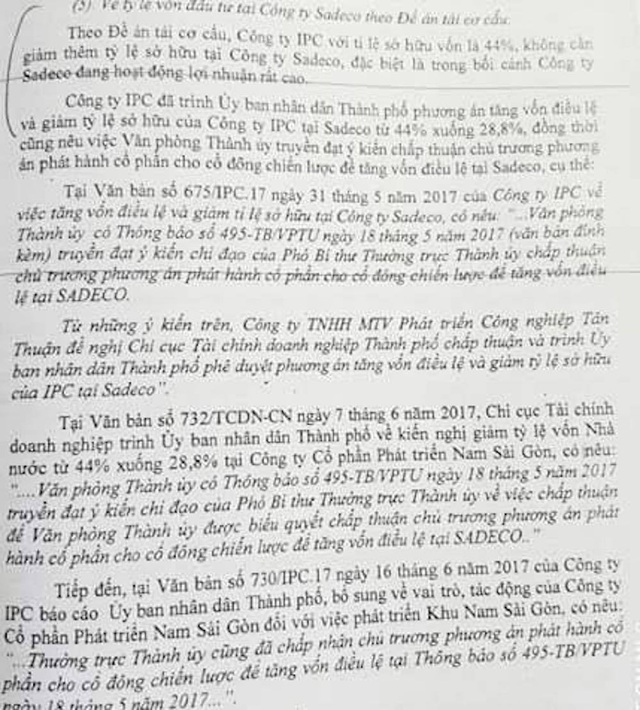 (5) Về tỷ lệ vốn đầu tư tại Công ty Sadeco theo Đề án tái cơ cấu.
Theo Đề án tái cơ cấu, Công ty IPC với tỉ lệ sở hữu vốn là 44%, không cần
giảm thêm tỷ lệ sở hữu tại Công ty Sadeco, đặc biệt là trong bối cảnh Công ty
Sadeco đang hoạt động lợi nhuận rất cao.
Công ty IPC đã trình Ủy ban nhân dân Thành phố phương án tăng vốn điều lệ
và giảm tỷ lệ sở hữu của Công ty IPC tại Sadeco từ 44% xuống 28,8%, đồng thời
cũng nêu việc Văn phòng Thành ủy truyền đạt ý kiến chấp thuận chủ trương phương
án phát hành cổ phần cho cổ đông chiến lược để tăng vốn điều lệ tại Sadeco, cụ thể:
Tại Văn bản số 675/IPC.17 ngày 31 tháng 5 năm 2017 của Công ty IPC về
việc tăng vốn điều lệ và giảm tỉ lệ sở hữu tại Công ty Sadeco, có nêu: "...Văn phòng
Thành ủy có Thông báo số 495-TB/VPTU ngày 18 tháng 5 năm 2017 (văn bản đính
kèm) truyền đạt ý kiến chỉ đạo của Phó Bí thư Thường trực Thành ủy chấp thuận
chủ trương phương án phát hành cổ phần cho cổ đông chiến lược để tăng vốn điều
lệ tại SADECO.
Từ những ý kiến trên, Công ty TNHH MTV Phát triển Công nghiệp Tân
Thuận đề nghị Chi cục Tài chính doanh nghiệp Thành phố chấp thuận và trình Ủy
ban nhân dân Thành phố phê duyệt phương án tăng vốn điều lệ và giảm tỷ lệ sở hữu
của IPC tại Sadeco".
Tại Văn bản số 732/TCDN-CN ngày 7 tháng 6 năm 2017, Chi cục Tài chính
doanh nghiệp trình Ủy ban nhân dân Thành phố về kiến nghị giảm tỷ lệ vốn Nhà
nước từ 44% xuống 28,8% tại Công ty Cổ phần Phát triển Nam Sài Gòn, có nêu:
"....Văn phòng Thành ủy có Thông báo số 495-TB/VPTU ngày 18 tháng 5 năm 2017
truyền đạt ý kiến chỉ đạo của Phó Bí thư Thường trực Thành ủy về việc chấp thuận
để Văn phòng Thành ủy được biểu quyết chấp thuận chủ trương phương án phát
hành cổ phần cho cổ đông chiến lược để tăng vốn điều lệ tại SADECO.."
Tiếp đến, tại Văn bản số 730/IPC.17 ngày 16 tháng 6 năm 2017 của Công ty
IPC báo cáo Ủy ban nhân dân Thành phố, bổ sung về vai trò, tác động của Công ty
Cổ phần Phát triển Nam Sài Gòn đối với việc phát triển Khu Nam Sài Gòn, có nêu:
"...Thường trực Thành ủy cũng đã chấp nhận chủ trương phương án phát hành cổ
phần cho cổ đông chiến lược để tăng vốn điều lệ tại Thông báo số 495-TB/VPTU
ngày 18 tháng 5 năm 2017...".